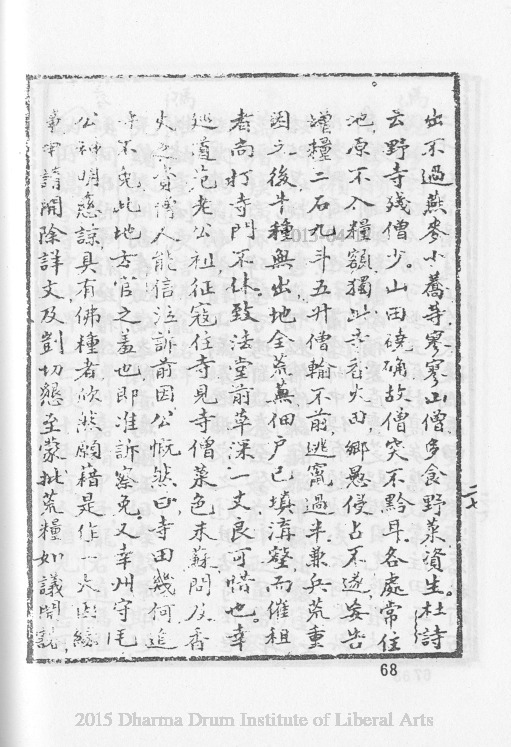 出不過燕麥小蕎等寥寥山僧多食野菜資生杜詩
云野寺殘僧少山田磽确故僧突不黔耳各處常住
池原不入糧額獨此寺香火田鄉愚侵占不遂妄告
增糧二石九斗五升僧輸不前逃竄過半兼兵荒重
困之後牛種無出地全荒蕪佃戶已填溝壑而催租
者尚打寺門不休致法堂前草深一丈良可惜也幸
巡道范老公祖征寇住寺見寺僧菜色未蘇問及香
火無資僧人能信泣訴前因公慨然曰寺田幾何追
不免此地方官之羞也即准訴案免又幸州守毛
公神明慈諒具有佛種者欣然願藉是作一大因緣
請開除詳文及剴切懇至蒙批荒糧如議開說
二七
68
2015 Dharma Drum Institute of Liberal Arts